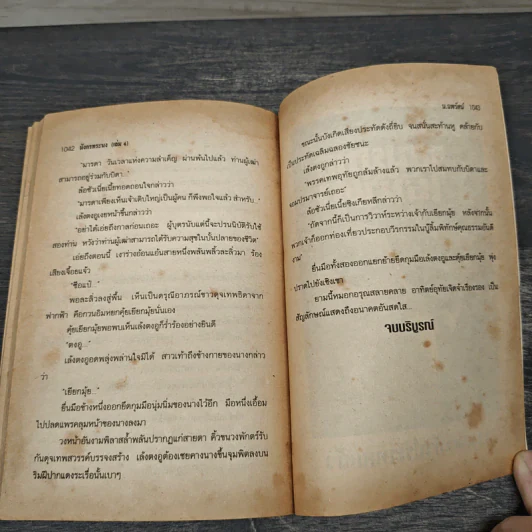 1042 มังกรทระนง (เล่ม 4)
"มารดา วันเวลาแห่งความสำเค็ญ ผ่านพ้นไปแล้ว ท่านผู้เฒ่า
สามารถอยู่ร่วมกับบิดา"
ล้อชิวเนี้ยเนี้ยทอดถอนใจกล่าวว่า
"มารดาเพียงเห็นเจ้าเติบใหญ่เป็นผู้คน ก็พึงพอใจแล้ว สำหรับ..."
เล้งตงฮูเงยหน้าขึ้นกล่าวว่า
"อย่าได้เอ่ยถึงกาลก่อนเถอะ ผู้บุตรนับแต่นี้จะปรนนิบัติรับใช้
สองท่าน หวังว่าท่านผู้เฒ่าสามารถได้รับความสุขในบั้นปลายของชีวิต"
เอ่ยถึงตอนนี้ เงาร่างอ้อนแอ้นสายหนึ่งพลันพลิ้วละลิ่วมา ร้อง
เสียงเจื้อยแจ้ว
"ซือแป๋..."
พอละลิ่วลงสู่พื้น เห็นเป็นดรุณีอาภรณ์ขาวดุจเทพธิดาจาก
ฟากฟ้า คือกวนอิมหยกคุ้ยเยียกมุ้ยนั่นเอง
คุ้ยเยียกมุ้ยพอพบเห็นเล้งตงฮูก็ร่ำร้องอย่างยินดี
"ตงฮู..."
เล้งตงฮูอดพลุ่งพล่านใจมิได้ สาวเท้าถึงข้างกายของนางกล่าว
ว่า
"เยียกมุ้ย..."
ยื่นมือข้างหนึ่งออกยึดกุมมือนุ่มนิ่มของนางไว้อีก มือหนึ่งเอื้อม
ไปปลดแพรคลุมหน้าของนางลงมา
วงหน้าอันงามพิลาสล้ำพลันปรากฏแก่สายตา คิ้วขนงพักตร์รับ
กันดุจเทพสวรรค์บรรจงสร้าง เล้งตงฮูต้องเชยคางนางขึ้นจุมพิตลงบน
ริมฝีปากแดงระเรื่อนั้นเบาๆ
น.นพรัตน์
ขณะนั้นบังเกิดเสียงประทัดดังถี่ยิบ จนสนั่นสะท้านหู คล้ายกับ
เป็นประทัดเฉลิมฉลองชัยชนะ
เล้งตงฮูกล่าวว่า
"พรรคเทพอุทัยถูกล้มล้างแล้ว พวกเราไปสมทบกับบิดาและ
จอมปรมาจารย์เถอะ"
ล้อชิวเนี้ยเนี้ยชิงเกียกลึกกล่าวว่า
"ถัดจากนี้ก็เป็นการวิวาห์ระหว่างเจ้ากับเยียกมุ้ย หลังจากนั้น
พวกเจ้าก็ออกท่องเที่ยวประกอบวีรกรรมในบู๊ลิ้มพิทักษ์คุณธรรมอันดี
งาม"
ยื่นมือทั้งสองออกแยกย้ายยึดกุมมือเล้งตงฮูและคุ้ยเยียกมุ้ย พุ่ง
ปราดไปยังเชิงเขา
ยามนี้หมอกอรุณสลายคลาย อาทิตย์อุทัยเจิดจ้าเรืองรอง เป็น
สัญลักษณ์แสดงถึงอนาคตอันสดใส...
จบบริบูรณ์